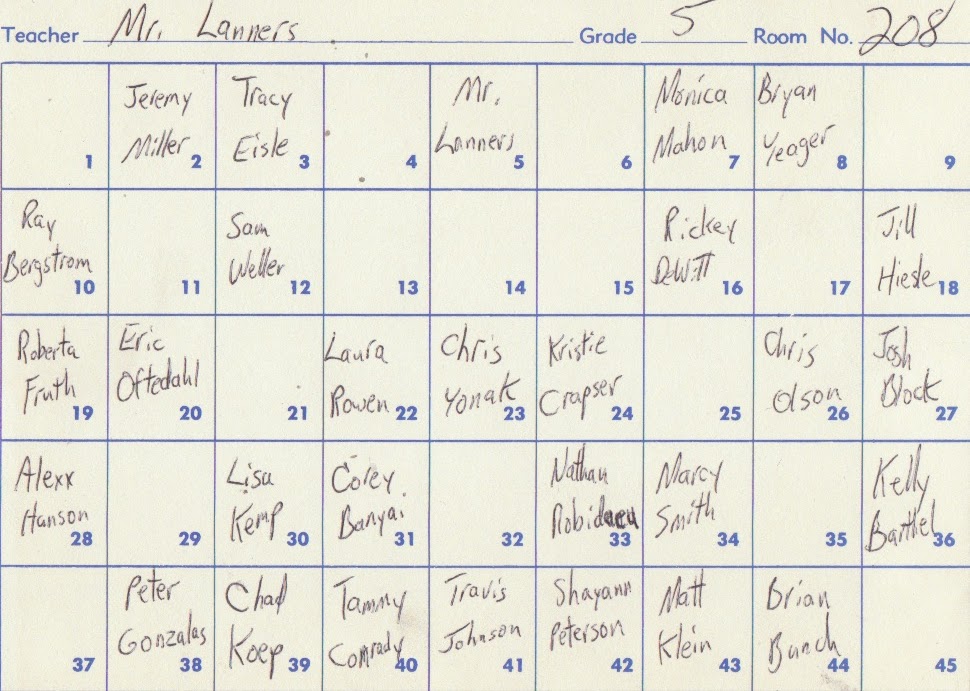 Teacher Mr. Lanners Grade 5 Room No. 208
1
Jeremy
Miller 2
Tracy
Eisle 3
4
Mr.
Lanners 5
6
Monica
Mahon 7
Bryan
Yeager 8
9
Ray
Bergstrom
10
11
Sam
Weller
12
13
14
15
Rickey
DeWitt
16
17
Jill
Hiesle 18
Roberta
Fruth
19
Eric
Oftedahl
20
21
Laura
Rowen 22
Chris
Yonak
23
Kristie
Crapser
24
25
Chris
Olson
26
Josh
Block
27
Alexx
Hanson
28
29
Lisa
Kemp
30
Corey
Banyai
31
32
Nathan
33
Marcy
Smith
34
35
Kelly
Barthel
36
37
Peter
Gonzalas
38
Chad
Koep 39
Tammy
Conrady
40
Travis
Johnson
41
Shayann
Peterson
42
Matt
Klein 43
Brian
Bunch
44
45